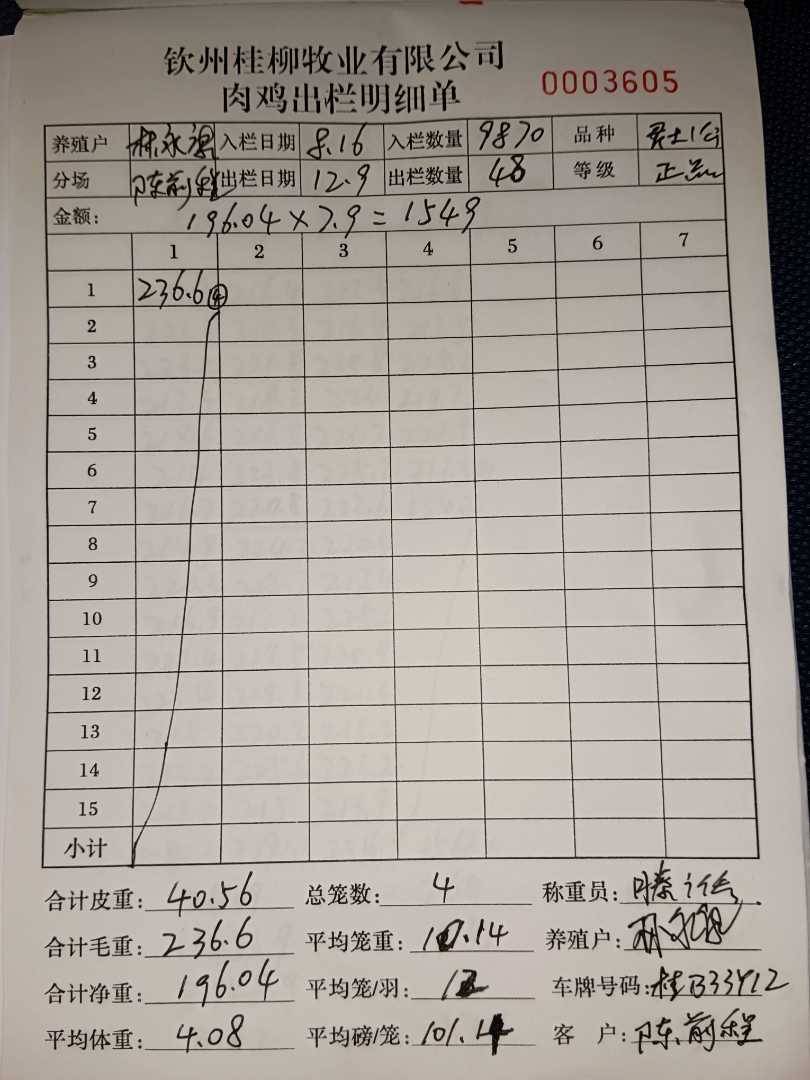 钦州桂柳牧业有限公司
肉鸡出栏明细单 0003605
养殖户 林永 入栏日期 8.16 入栏数量 9870 品种
分场 陈前程 出栏日期 12.9 出栏数量 48 等级 正品
金额: 196.04×7.9=1549
1 2 3 4 5 6 7
1 236.6 ④
2
3
4
5
6
7
8
9
10
11
12
13
14
15
小计
合计皮重: 40.56 总笼数: 4 称重员:
合计毛重: 236.6 平均笼重: 10.14 养殖户: 林永
合计净重: 196.04 平均笼/羽: 12 车牌号码: 桂B33Y12
平均体重: 4.08 平均磅/笼: 101.4 客 户: 陈前程